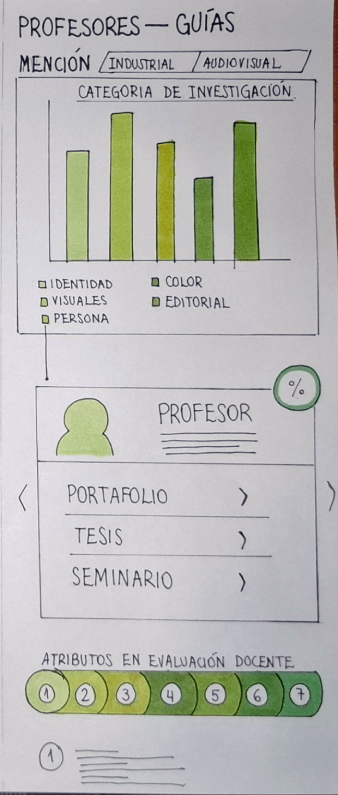 PROFESORES — GUÍAS
MENCIÓN / INDUSTRIAL / AUDIOVISUAL
CATEGORIA DE INVESTIGACIÓN
IDENTIDAD
COLOR
VISUALES
EDITORIAL
PERSONA
%
PROFESOR
PORTAFOLIO >
TESIS >
SEMINARIO >
ATRIBUTOS EN EVALUACIÓN DOCENTE
1 2 3 4 5 6 7
1